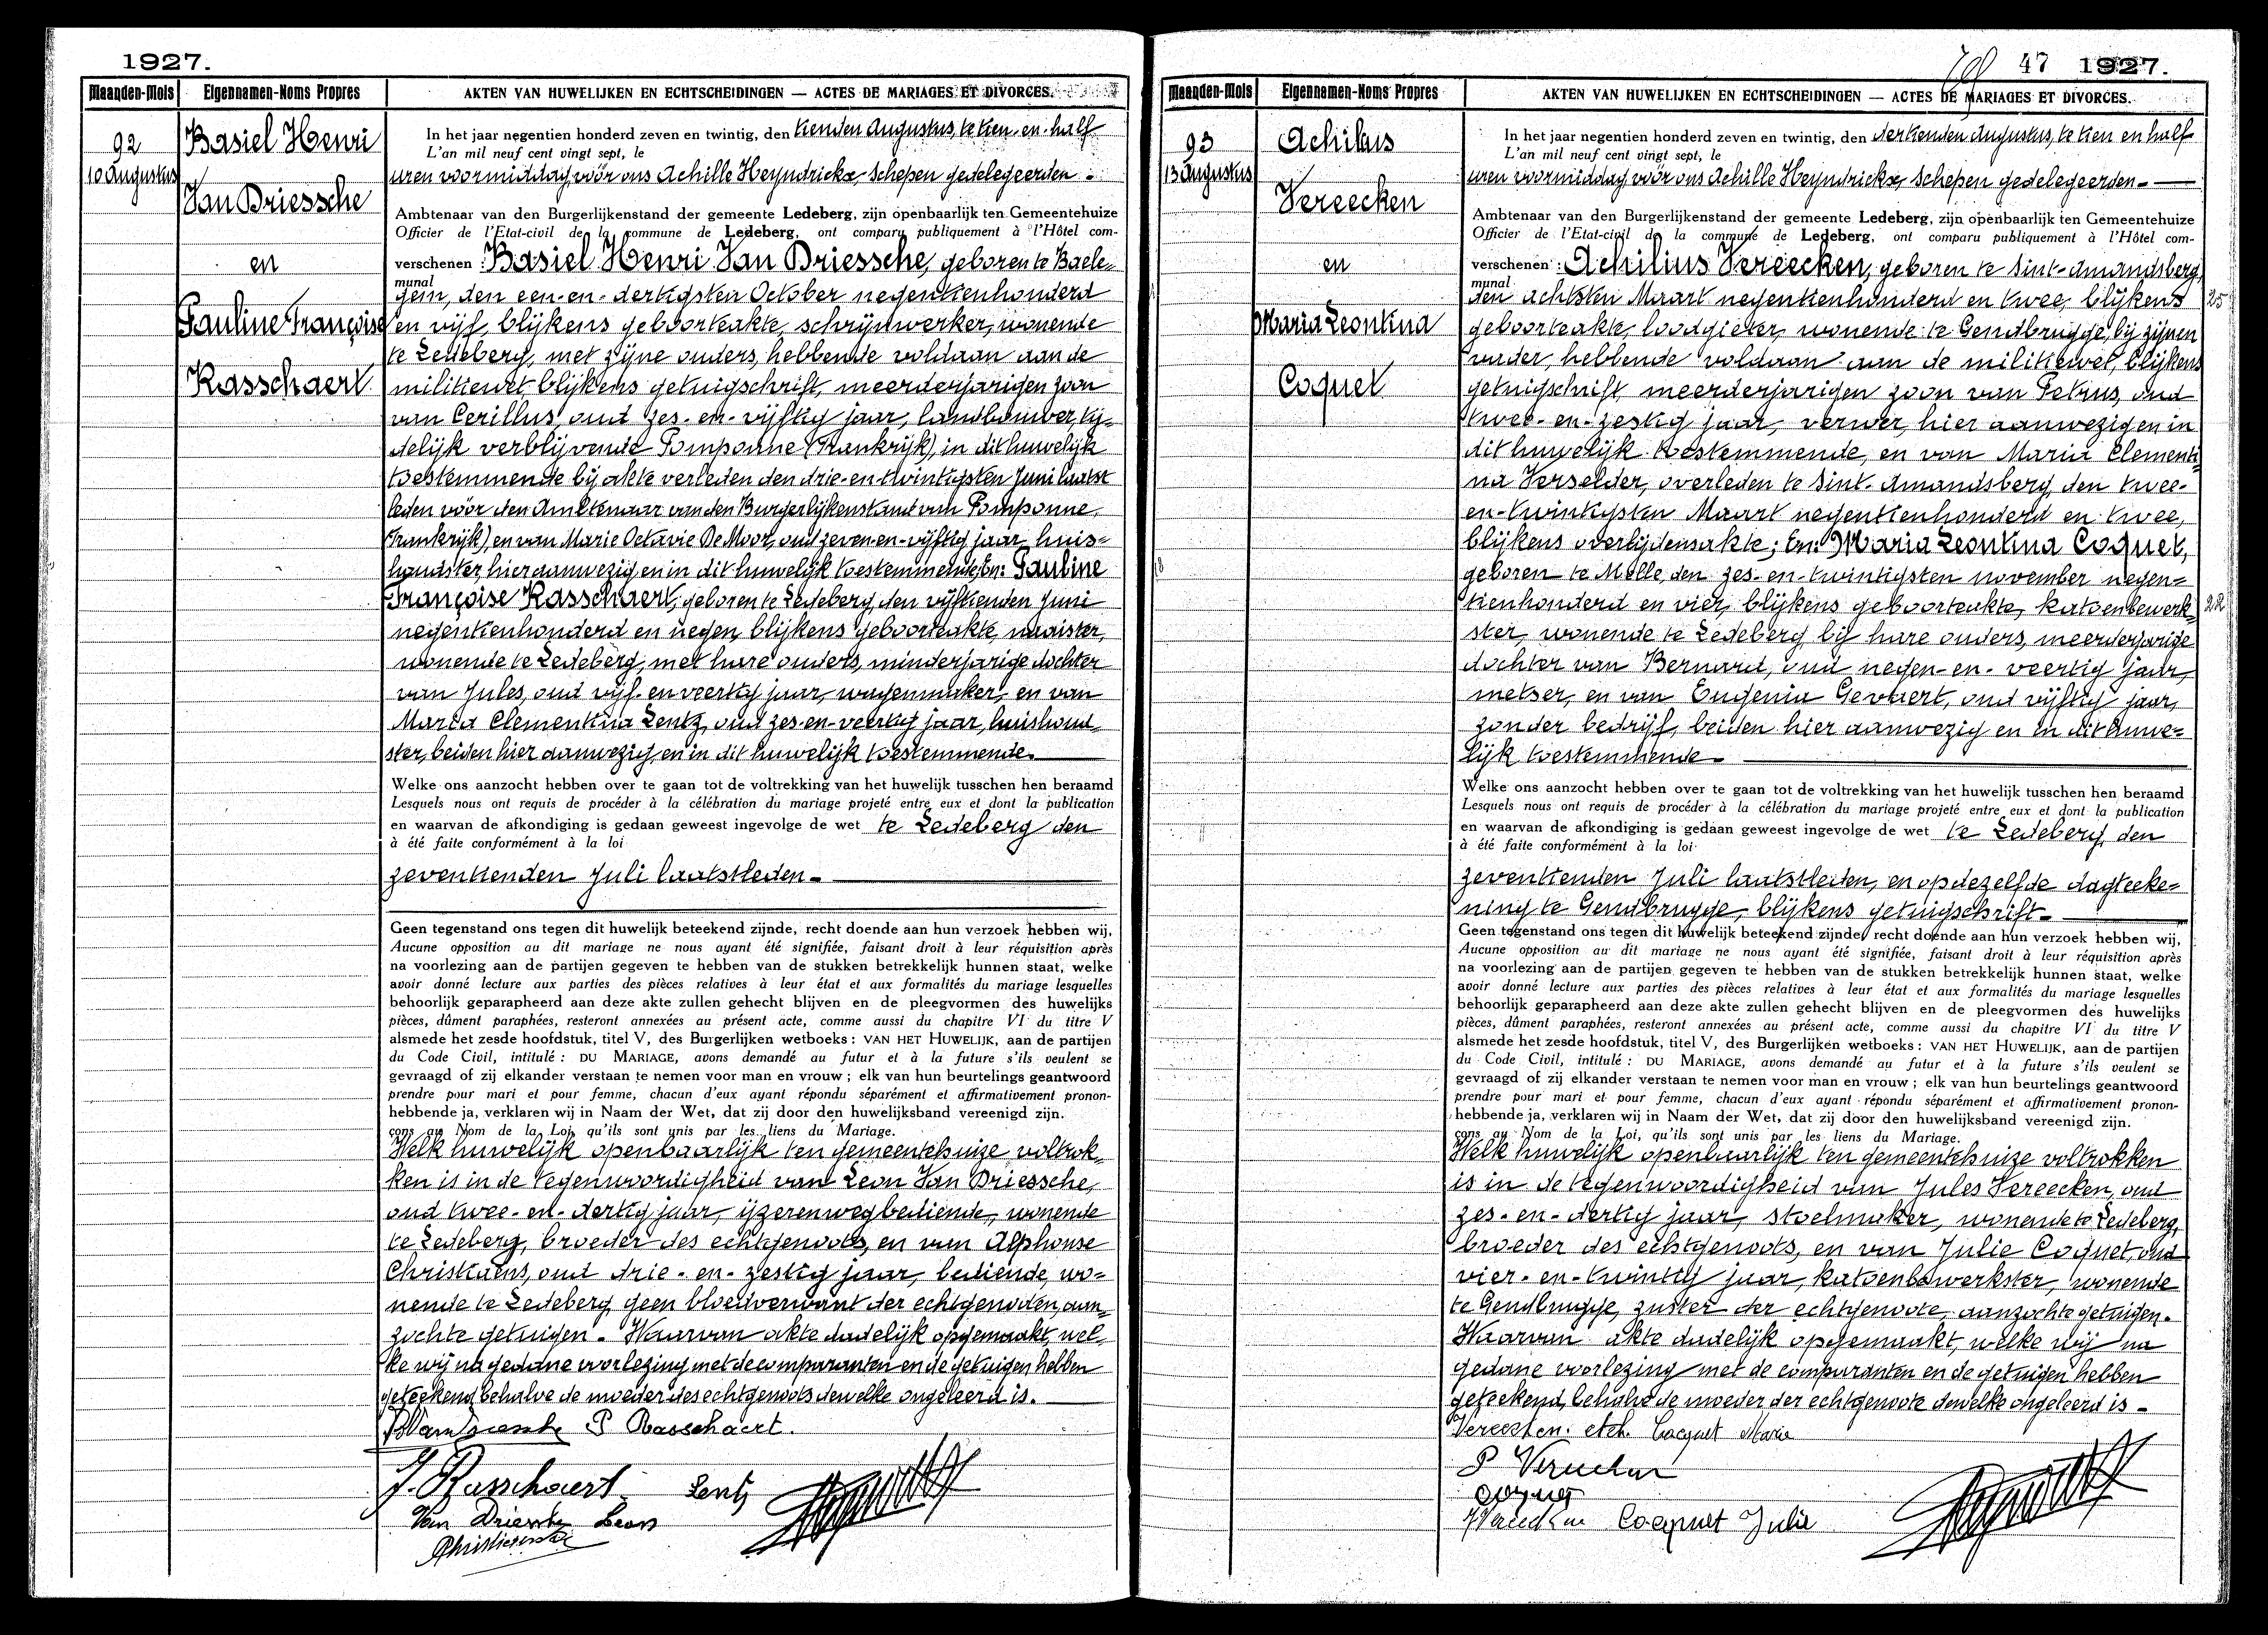 1927.
Maanden-Mois
Eigennamen-Noms Propres
AKTEN VAN HUWELIJKEN EN ECHTSCHEIDINGEN — ACTES DE MARIAGES ET DIVORCES.
92
10 Augustus
Basiel Henri
Van Driessche
en
Pauline Françoise
Rasschaert
In het jaar negentien honderd zeven en twintig, den tienden Augustus, te tien-en-half
L'an mil neuf cent vingt sept, le
uren voormiddag, vóór ons Achille Heyndrickx, Schepen gedelegeerden -
Ambtenaar van den Burgerlijkenstand der gemeente Ledeberg, zijn openbaarlijk ten Gemeentehuize
Officier de l'Etat-civil de la commune de Ledeberg, ont comparu publiquement à l'Hôtel com-
verschenen : Basiel Henri Van Driessche, geboren te Baele-
munal
gem, den een-en-dertigsten October negentienhonderd
en vijf, blijkens geboorteakte, schrijnwerker, wonende
te Ledeberg, met zijne ouders, hebbende voldaan aan de
militiewet, blijkens getuigschrift, meerderjarigen zoon
van Cerillus, oud zes-en-vijftig jaar, landbouwer, tij-
delijk verblijvende Pomponne (Frankrijk), in dit huwelijk
toestemmende bij akte verleden den drie-en-twintigsten Juni laatst
leden vóór den Ambtenaar van den Burgerlijkenstand van Pomponne
(Frankrijk), en van Marie Octavie De Moor, oud zeven-en-vijftig jaar, huis-
houdster, hier aanwezig en in dit huwelijk toestemmende; En: Pauline
Françoise Rasschaert, geboren te Ledeberg, den vijftienden Juni
negentienhonderd en negen, blijkens geboorteakte, naaister,
wonende te Ledeberg, met hare ouders, minderjarige dochter
van Jules, oud vijf-en-veertig jaar, wagenmaker, en van
Maria Clementina Lentz, oud zes-en-veertig jaar, huishoud-
ster, beiden hier aanwezig en in dit huwelijk toestemmende.
Welke ons aanzocht hebben over te gaan tot de voltrekking van het huwelijk tusschen hen beraamd
Lesquels nous ont requis de procéder à la célébration du mariage projeté entre eux et dont la publication
en waarvan de afkondiging is gedaan geweest ingevolge de wet te Ledeberg den
à été faite conformément à la loi
zeventienden Juli laatstleden.
Geen tegenstand ons tegen dit huwelijk beteekend zijnde, recht doende aan hun verzoek hebben wij,
Aucune opposition au dit mariage ne nous ayant été signifiée, faisant droit à leur réquisition après
na voorlezing aan de partijen gegeven te hebben van de stukken betrekkelijk hunnen staat, welke
avoir donné lecture aux parties des pièces relatives à leur état et aux formalités du mariage lesquelles
behoorlijk geparapheerd aan deze akte zullen gehecht blijven en de pleegvormen des huwelijks
pièces, dûment paraphées, resteront annexées au présent acte, comme aussi du chapitre VI du titre V
alsmede het zesde hoofdstuk, titel V, des Burgerlijken wetboeks : VAN HET HUWELIJK, aan de partijen
du Code Civil, intitulé : DU MARIAGE, avons demandé au futur et à la future s'ils veulent se
gevraagd of zij elkander verstaan te nemen voor man en vrouw ; elk van hun beurtelings geantwoord
prendre pour mari et pour femme, chacun d'eux ayant répondu séparément et affirmativement pronon-
hebbende ja, verklaren wij in Naam der Wet, dat zij door den huwelijksband vereenigd zijn.
çons au Nom de la Loi, qu'ils sont unis par les liens du Mariage.
Welk huwelijk openbaarlijk ten gemeentehuize voltrok-
ken is in de tegenwoordigheid van Leon Van Driessche,
oud twee-en-dertig jaar, ijzerenwegbediende, wonende
te Ledeberg, broeder des echtgenoots, en van Alphonse
Christiaens, oud drie-en-zestig jaar, bediende, wo-
nende te Ledeberg, geen bloedverwant der echtgenoden, aan-
zochte getuigen. Waarvan akte dadelijk opgemaakt, wel-
ke wij na gedane voorlezing met de comparanten en de getuigen hebben
geteekend, behalve de moeder des echtgenoots dewelke ongeleerd is.
P Rasschaert.
J. Rasschaert Lentz
Van Driessche Leon
47 1927.
Maanden-Mois
Eigennamen-Noms Propres
AKTEN VAN HUWELIJKEN EN ECHTSCHEIDINGEN — ACTES DE MARIAGES ET DIVORCES.
93
13 Augustus
Achilius
Vereecken
en
Maria Leontina
Coquet
In het jaar negentien honderd zeven en twintig, den dertienden Augustus, te tien en half
L'an mil neuf cent vingt sept, le
uren voormiddag, vóór ons Achille Heyndrickx, Schepen gedelegeerden -
Ambtenaar van den Burgerlijkenstand der gemeente Ledeberg, zijn openbaarlijk ten Gemeentehuize
Officier de l'Etat-civil de la commune de Ledeberg, ont comparu publiquement à l'Hôtel com-
verschenen : Achilius Vereecken, geboren te Sint-Amandsberg,
munal
den achtsten Maart negentienhonderd en twee, blijkens 25
geboorteakte, loodgieter, wonende te Gendbrugge, bij zijnen
vader, hebbende voldaan aan de militiewet, blijkens
getuigschrift, meerderjarigen zoon van Petrus, oud
twee-en-zestig jaar, verwer, hier aanwezig en in
dit huwelijk toestemmende, en van Maria Clementi-
na Verselder, overleden te Sint-Amandsberg, den twee-
en-twintigsten Maart negentienhonderd en twee,
blijkens overlijdensakte; En: Maria Leontina Coquet,
geboren te Melle, den zes-en-twintigsten november negen-
tienhonderd en vier, blijkens geboorteakte, katoenbewerk- 22
ster, wonende te Ledeberg, bij hare ouders, meerderjarige
dochter van Bernard, oud negen-en-veertig jaar,
metser, en van Eugenia Gevaert, oud vijftig jaar,
zonder bedrijf, beiden hier aanwezig en in dit huwe-
lijk toestemmende.
Welke ons aanzocht hebben over te gaan tot de voltrekking van het huwelijk tusschen hen beraamd
Lesquels nous ont requis de procéder à la célébration du mariage projeté entre eux et dont la publication
en waarvan de afkondiging is gedaan geweest ingevolge de wet te Ledeberg, den
à été faite conformément à la loi
zeventienden Juli laatstleden, en op dezelfde dagteeke-
ning te Gendbrugge, blijkens getuigschrift.
Geen tegenstand ons tegen dit huwelijk beteekend zijnde, recht doende aan hun verzoek hebben wij,
Aucune opposition au dit mariage ne nous ayant été signifiée, faisant droit à leur réquisition après
na voorlezing aan de partijen gegeven te hebben van de stukken betrekkelijk hunnen staat, welke
avoir donné lecture aux parties des pièces relatives à leur état et aux formalités du mariage lesquelles
behoorlijk geparapheerd aan deze akte zullen gehecht blijven en de pleegvormen des huwelijks
pièces, dûment paraphées, resteront annexées au présent acte, comme aussi du chapitre VI du titre V
alsmede het zesde hoofdstuk, titel V, des Burgerlijken wetboeks : VAN HET HUWELIJK, aan de partijen
du Code Civil, intitulé : DU MARIAGE, avons demandé au futur et à la future s'ils veulent se
gevraagd of zij elkander verstaan te nemen voor man en vrouw ; elk van hun beurtelings geantwoord
prendre pour mari et pour femme, chacun d'eux ayant répondu séparément et affirmativement pronon-
hebbende ja, verklaren wij in Naam der Wet, dat zij door den huwelijksband vereenigd zijn.
çons au Nom de la Loi, qu'ils sont unis par les liens du Mariage.
Welk huwelijk openbaarlijk ten gemeentehuize voltrokken
is in de tegenwoordigheid van Jules Vereecken, oud
zes-en-dertig jaar, stoelmaker, wonende te Ledeberg,
broeder des echtgenoots, en van Julie Coquet, oud
vier-en-twintig jaar, katoenbewerkster, wonende
te Gendbrugge, zuster der echtgenoote, aanzochte getuigen.
Waarvan akte dadelijk opgemaakt, welke wij na
gedane voorlezing met de comparanten en de getuigen hebben
geteekend, behalve de moeder der echtgenoote dewelke ongeleerd is -
Vereecken. Ach. Cocquet Marie
P Vereecken
Cocquet Julie